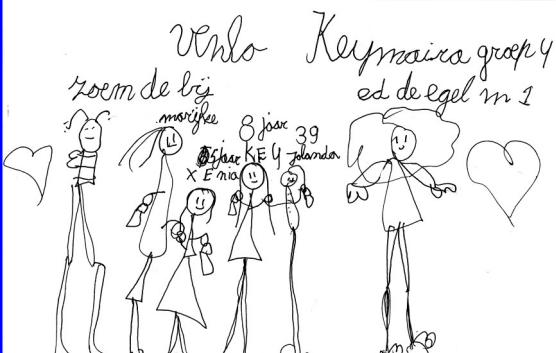 Venlo Keymaira groep 4
zoem de bij ed de egel m 1
marijke 8 jaar 39
5 jaar KEY Jolanda
XEnia